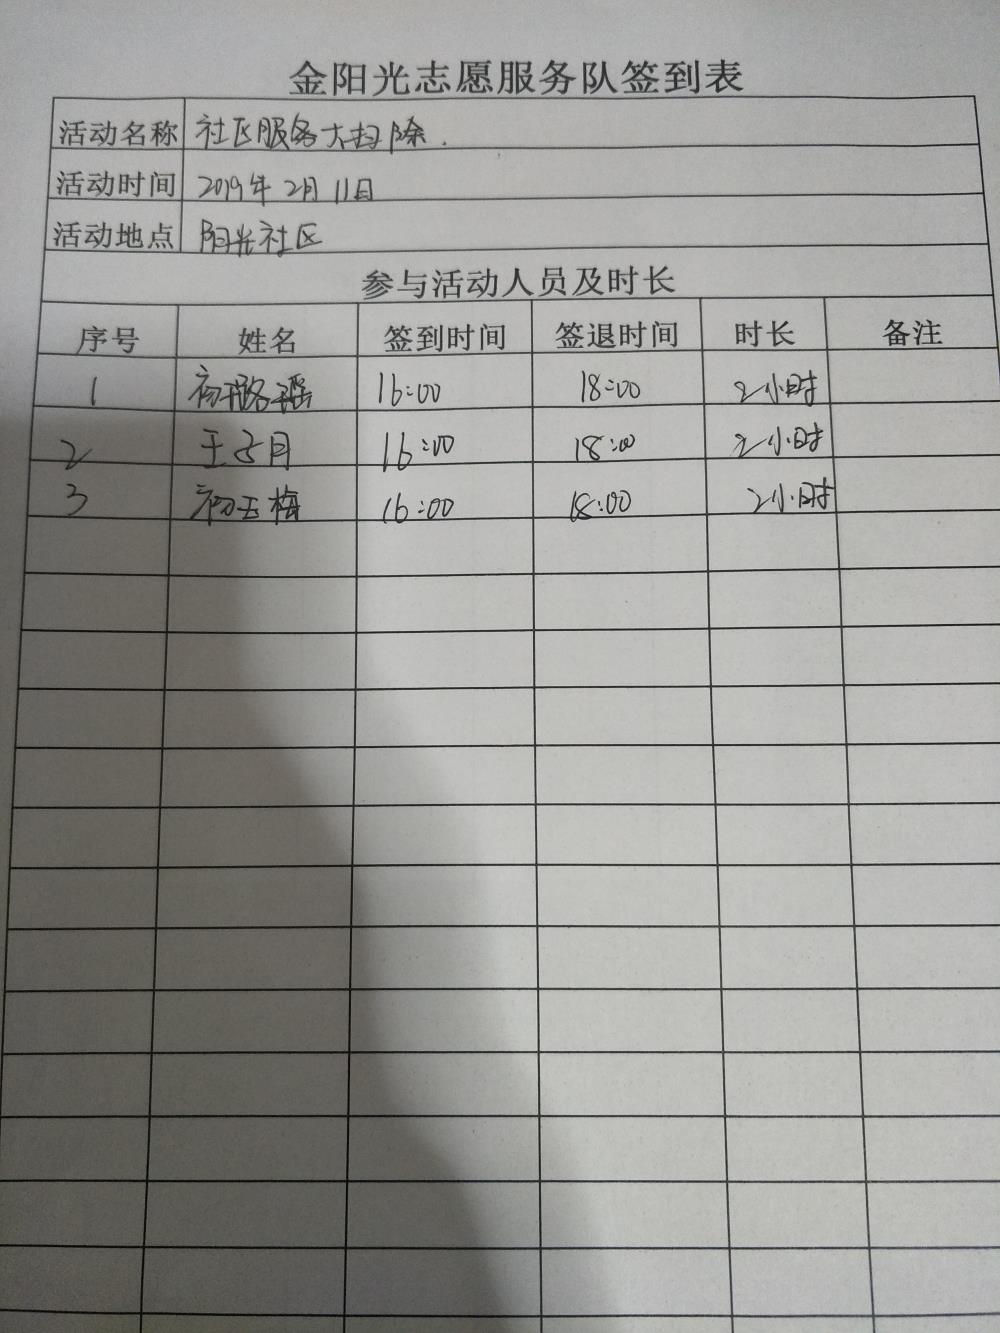 金阳光志愿服务队签到表
活动名称 社区服务大扫除.
活动时间 2019年2月11日
活动地点 阳光社区
参与活动人员及时长
序号 姓名 签到时间 签退时间 时长 备注
1 初璐瑶 16:00 18:00 2小时
2 王占月 16:00 18:00 2小时
3 初玉梅 16:00 18:00 2小时